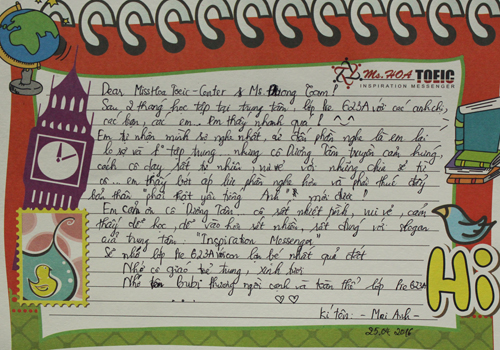 Ms. HOA TOEIC
INSPIRATION MESSENGER
Dear MissHoa Toeic-Center & Ms. Dương Toeam!
Sau 2 tháng học tập tại trung tâm, lớp Pre 623A với các anh chị,
các bạn, các em. Em thấy nhanh quá! ^^
Em tự nhận mình là nghe nhất, cứ đến phần nghe là em lại
lo sợ và tập trung nhưng cô Dương Tâm truyền cảm hứng,
cách cô dạy rất tự nhiên, vui vẻ với những chia sẻ từ
cô em thấy bớt áp lực phần nghe hơn và phải thúc đẩy
bản thân phải đặt yêu tiếng Anh mới được!
Em cảm ơn cô Dương Tâm cô rất nhiệt tình, vui vẻ, cảm
thấy dễ học, dễ vào hơn rất nhiều, rất đúng với slogan
của trung tâm: "Inspiration Messenger"
Sẽ nhớ lớp Pre 623A lắm nhất quả đất
Nhớ cô giáo trẻ trung, xinh tươi
Nhớ thương ngồi cạnh và toàn thể lớp Pre 623A
Kí tên: - Mai Anh -
25.04.2016
Hi